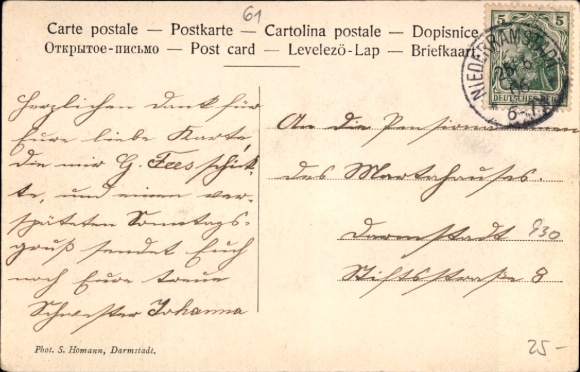 61
Carte postale — Postkarte — Cartolina postale — Dopisnice
Открытое-письмо — Post card — Levelezö-Lap — Briefkaart
5 5
DEUTSCHES REICH
NIEDER RAMSTADT
6-7
Herzlichen Dank für
Eure liebe Karte
die mir G. Fees schick-
te, und einen ver-
späteten Sonntags-
gruß sendet Euch
noch Eure treue
Schwester Johanna
An die Pensionärinnen
des Marthahauses.
Darmstadt
Stiftsstraße 8
Phot. S. Homann, Darmstadt.
25-